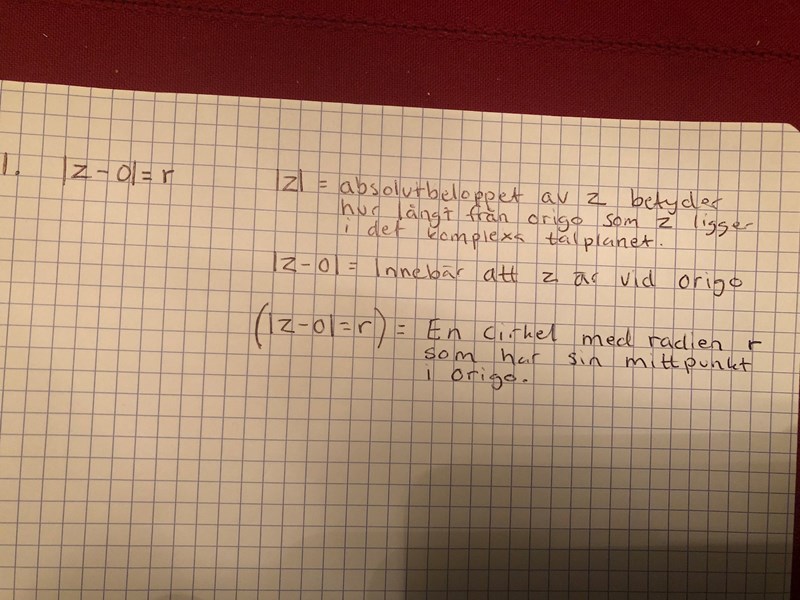 1. |z-0|=r
|z| = absolutbeloppet av z betyder
hur långt från origo som z ligger
i det komplexa talplanet.
|z-0| = Innebär att z är vid origo
(|z-0|=r) = En cirkel med radien r
som har sin mittpunkt
i origo.